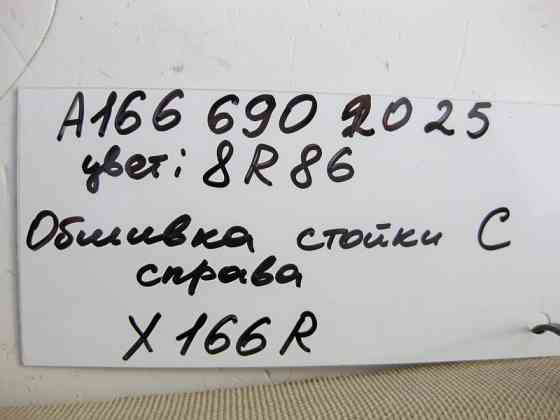 A166 690 20 25
цвет: 8R86
Обшивка стойки С
справа
X166R